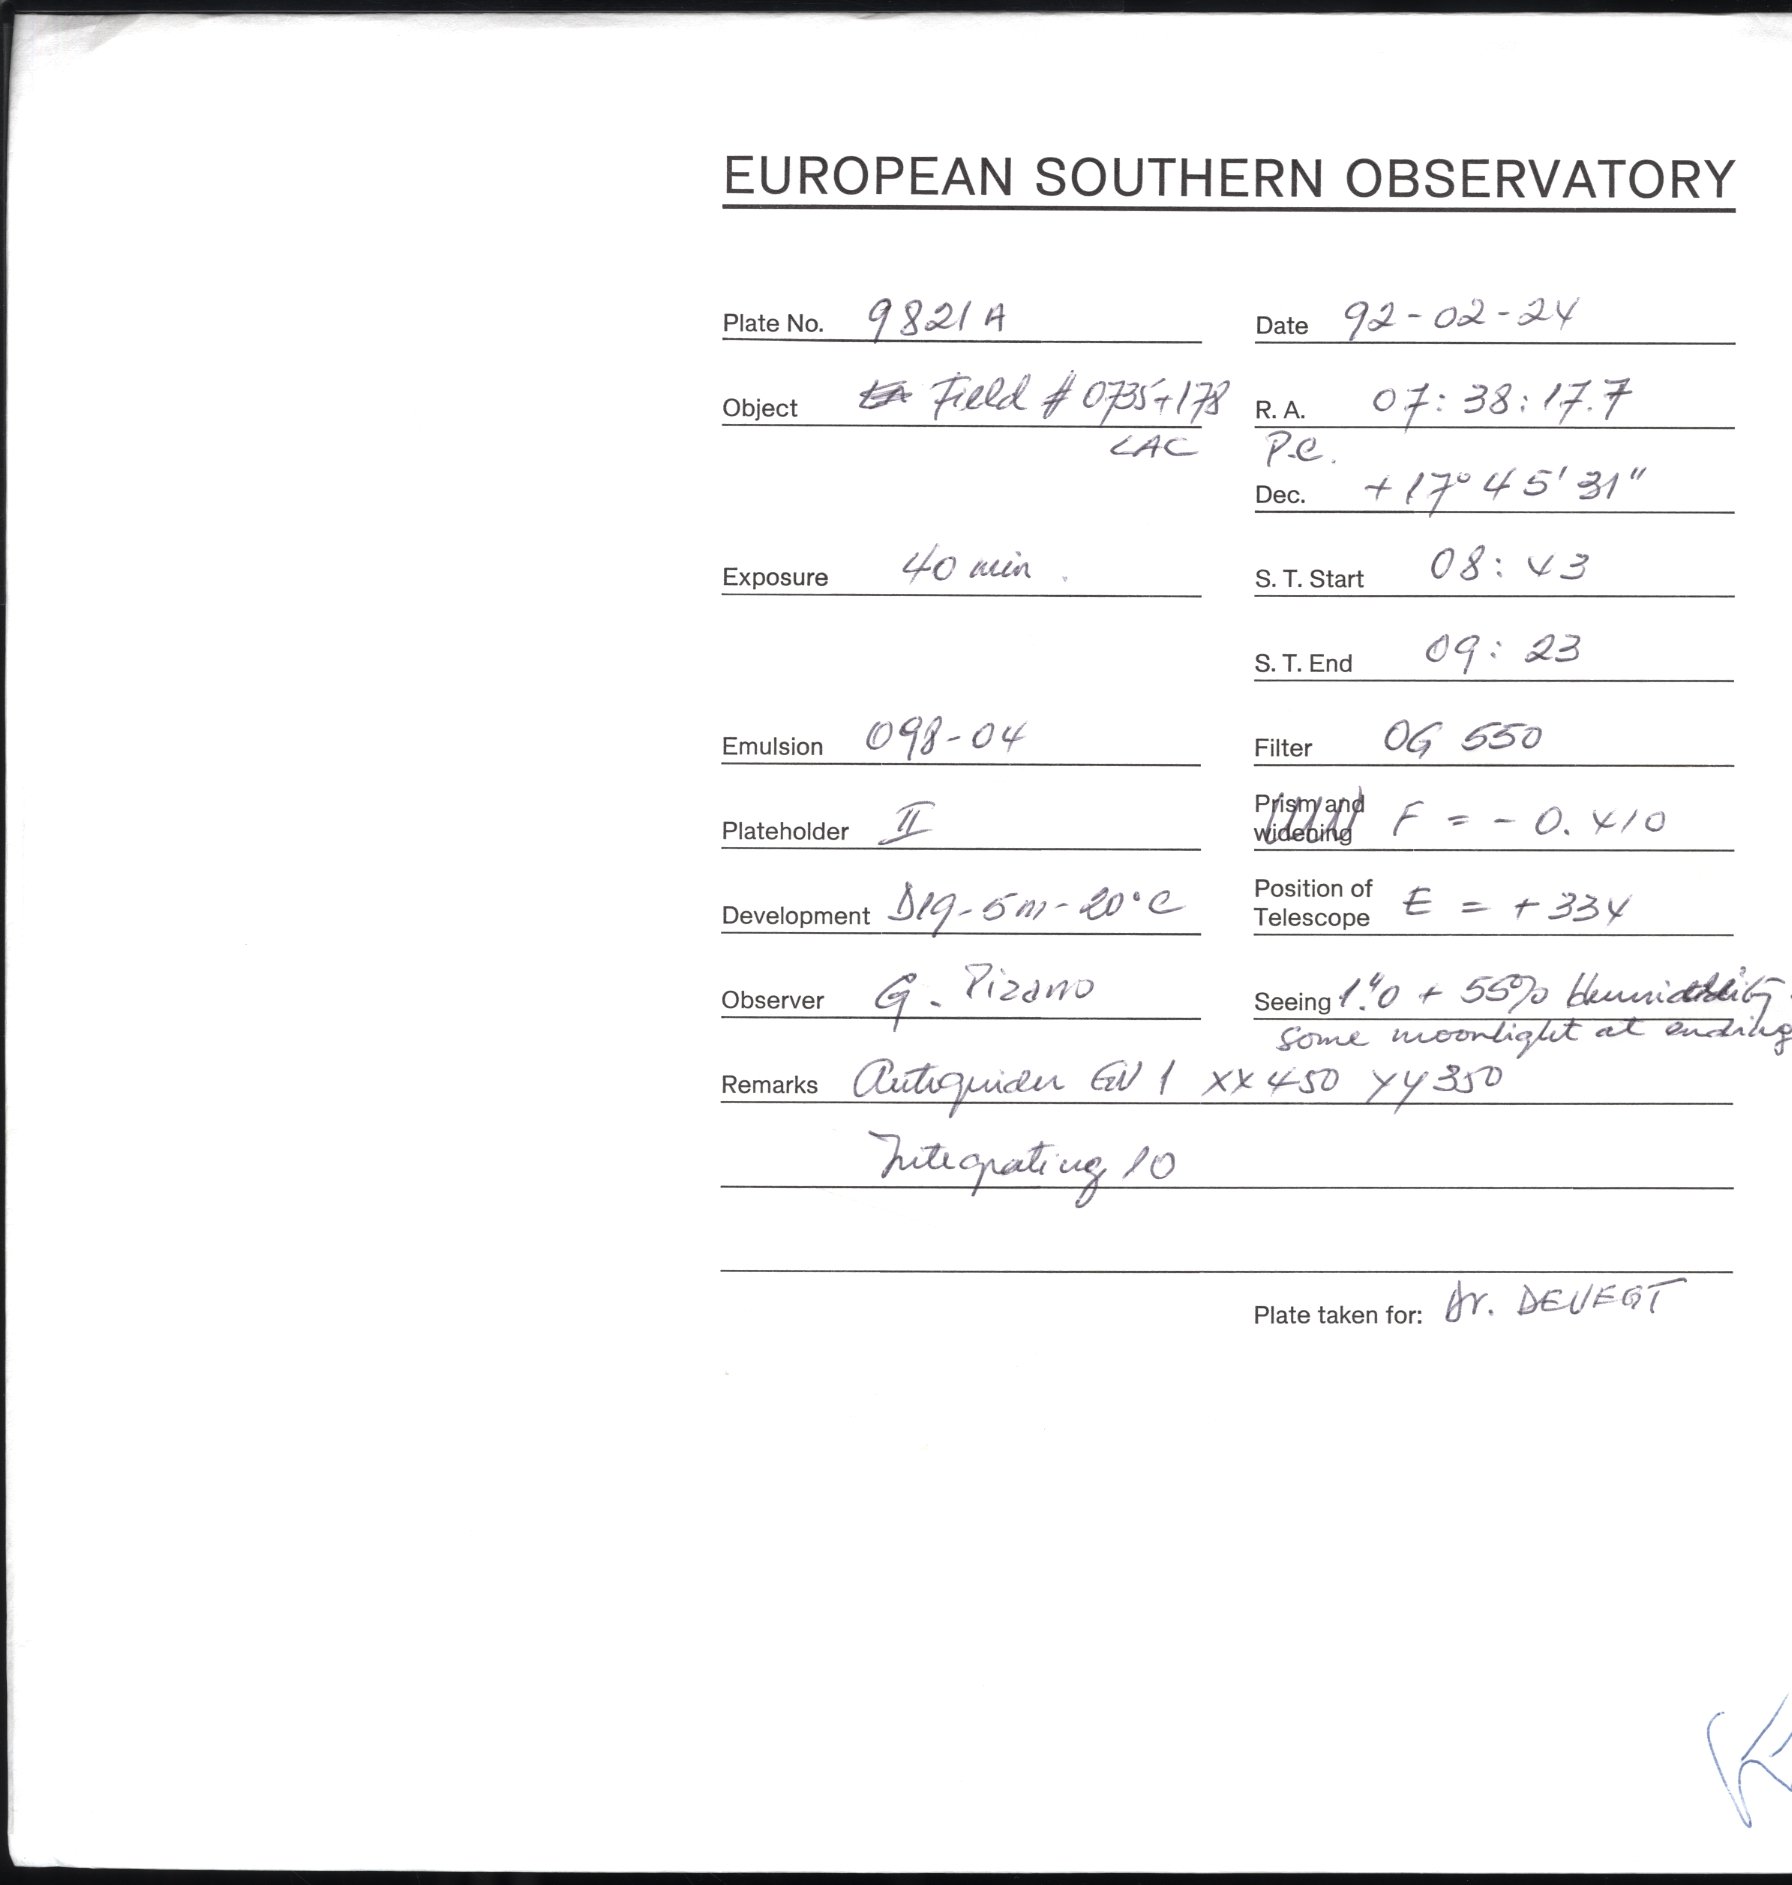 EUROPEAN SOUTHERN OBSERVATORY
Plate No. 9821 A Date 92-02-24
Object Field # 0735+178 R. A. 07:38:17.7
LAC P.C.
Dec. +17° 45' 31"
Exposure 40 min. S. T. Start 08:43
S. T. End 09:23
Emulsion 098-04 Filter OG 550
Prism and
Plateholder II widening F = - 0.410
Position of
Development D19-5m-20°C Telescope E = +334
Observer G. Pizarro Seeing 1."0 + 55% Humidity.
some moonlight at ending
Remarks Autoguider GV 1 XX450 YY350
Integrating 10
Plate taken for: Dr. DEVEGT